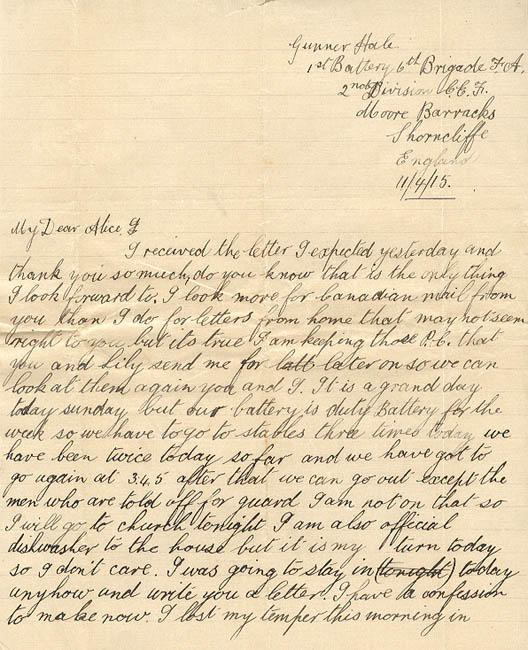 Gunner Hale.
1st Battery 6th Brigade F.A.
2nd Division C.E.F.
Moore Barracks
Shorncliffe
England
11/4/15.
My Dear Alice
I received the letter I expected yesterday and
thank you so much, do you know that is the only thing
I look forward to. I look more for Canadian mail from
you than I do for letters from home that may not seem
right to you but its true I am keeping those P.C. that
you and Lily send me for latt later on so we can
look at them again you and I. It is a grand day
today sunday but our battery is duty Battery for the
week so we have to go to stables three times today we
have been twice today so far and we have got to
go again at 3.45 after that we can go out except the
men who are told off for guard I am not on that so
I will go to church tonight I am also official
dishwasher to the house but it is my turn today
so I don't care. I was going to stay in (tonight) today
anyhow and write you a letter. I have a confession
to make now. I lost my temper this morning in